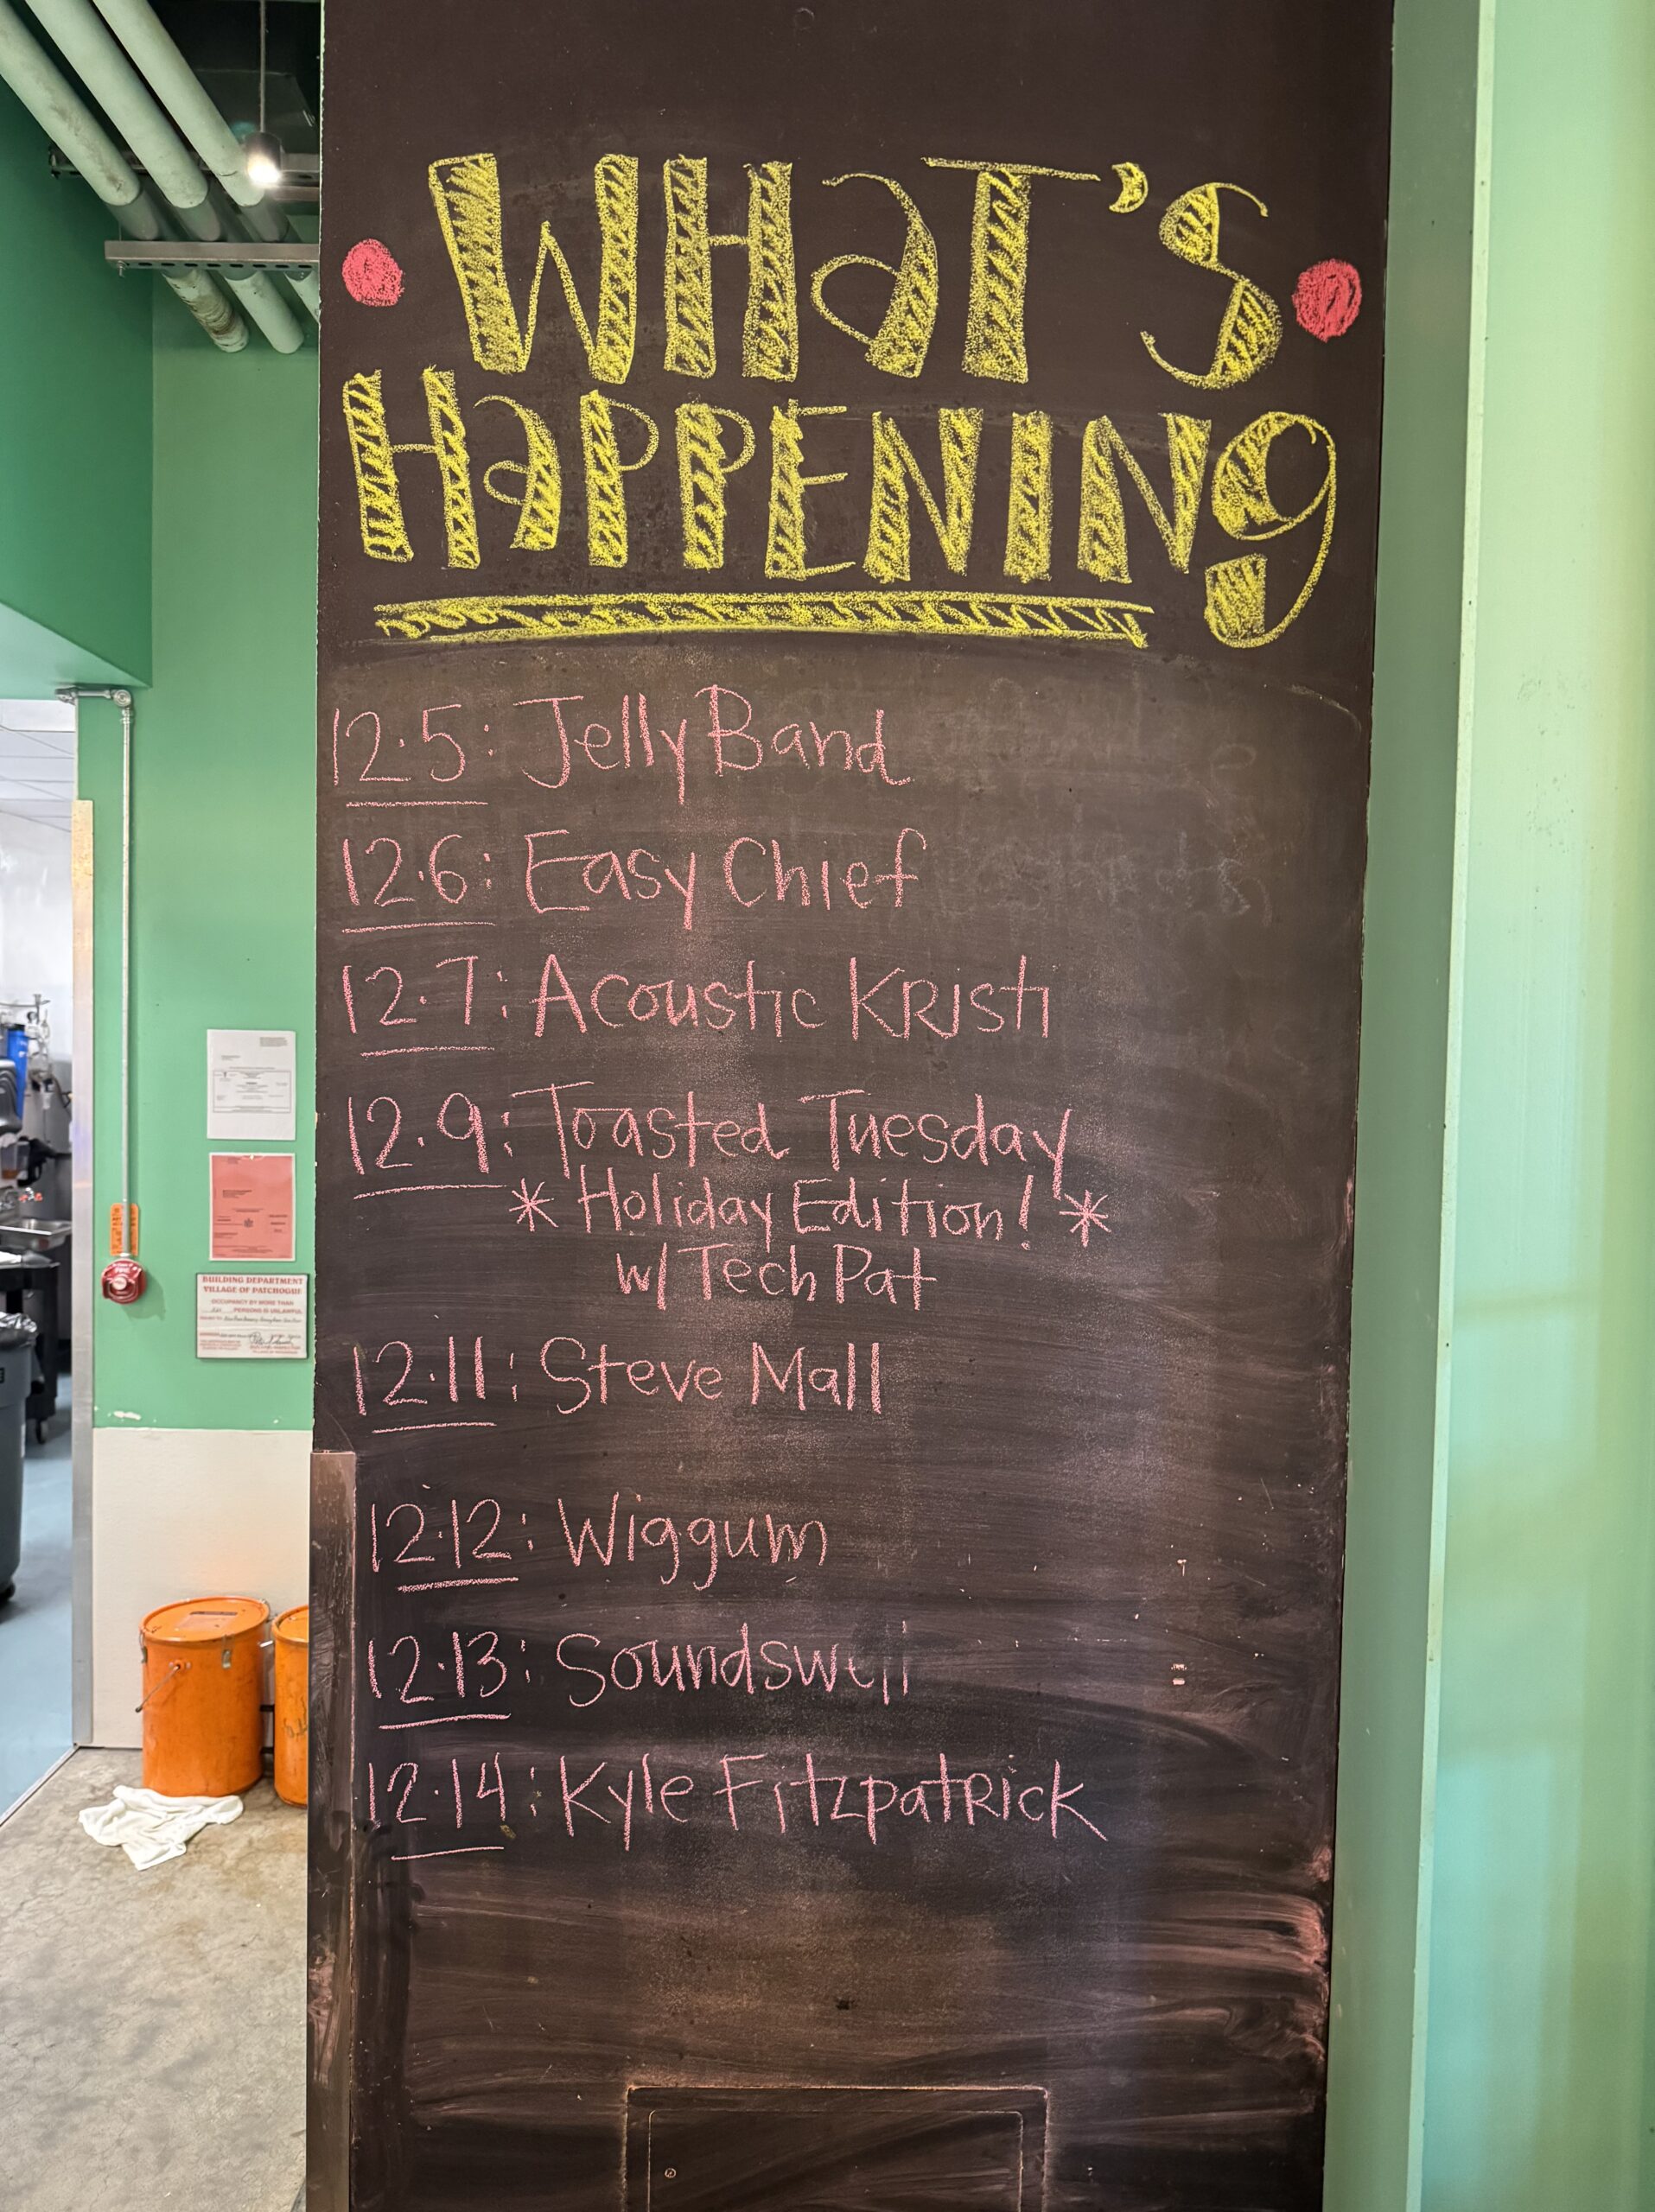 WHaT'S
HaPPENINg
12.5: Jelly Band
12.6: Easy Chief
12.7: Acoustic KRisti
12.9: Toasted Tuesday
* Holiday Edition! *
w/ Tech Pat
12.11: Steve Mall
12.12: Wiggum
12.13: Soundswell
12.14: Kyle FitzpatRick
BUILDING DEPARTMENT
VILLAGE OF PATCHOGUE
OCCUPANCY BY MORE THAN
PERSONS IS UNLAWFUL